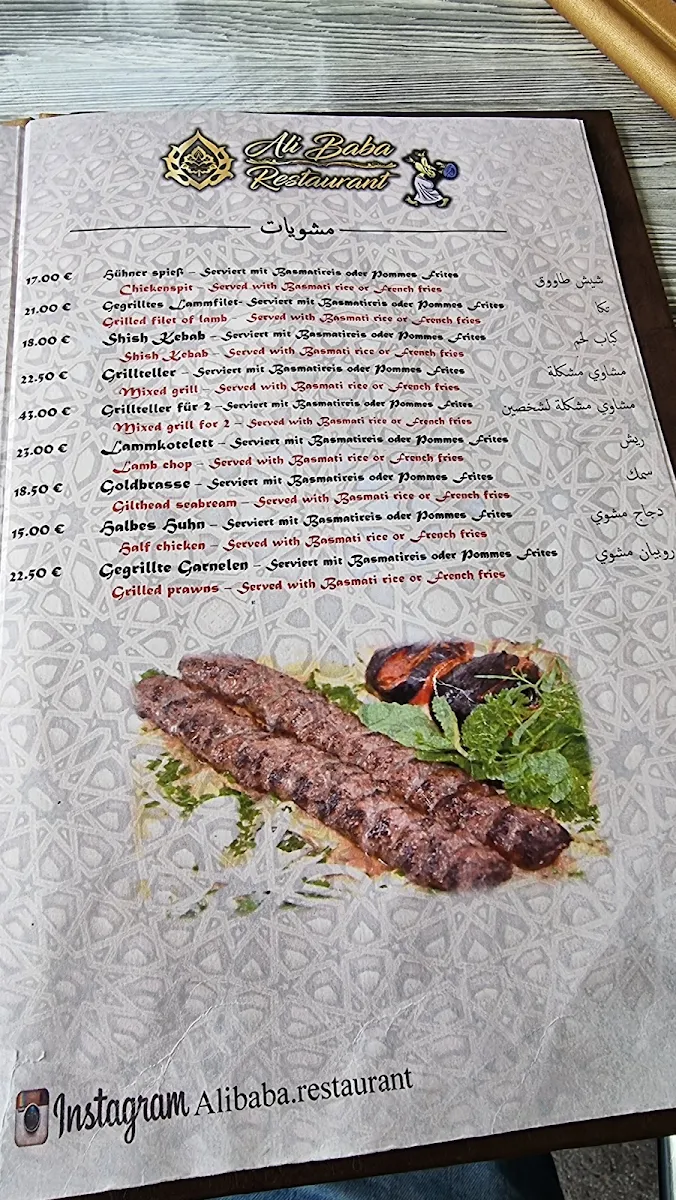 Ali Baba
Restaurant
مشويات
17.00 € Hühner spieß - Serviert mit Basmatireis oder Pommes Frites شيش طاووق
Chickenspit - Served with Basmati rice or French fries
21.00 € Gegrilltes Lammfilet- Serviert mit Basmatireis oder Pommes Frites تكا
Grilled filet of lamb - Served with Basmati rice or French fries
18.00 € Shish Kebab - Serviert mit Basmatireis oder Pommes Frites كباب لحم
Shish Kebab - Served with Basmati rice or French fries
22.50 € Grillteller - Serviert mit Basmatireis oder Pommes Frites مشاوي مشكلة
Mixed grill - Served with Basmati rice or French fries
43.00 € Grillteller für 2 -Serviert mit Basmatireis oder Pommes Frites مشاوي مشكلة لشخصين
Mixed grill for 2 - Served with Basmati rice or French fries
23.00 € Lammkotelett - Serviert mit Basmatireis oder Pommes Frites ريش
Lamb chop - Served with Basmati rice or French fries
18.50 € Goldbrasse - Serviert mit Basmatireis oder Pommes Frites سمك
Gilthead seabream - Served with Basmati rice or French fries
15.00 € Halbes Huhn - Serviert mit Basmatireis oder Pommes Frites دجاج مشوي
Half chicken - Served with Basmati rice or French fries
22.50 € Gegrillte Garnelen - Serviert mit Basmatireis oder Pommes Frites روبيان مشوي
Grilled prawns - Served with Basmati rice or French fries
Instagram Alibaba.restaurant